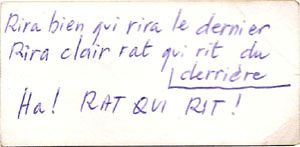 Rira bien qui rira le dernier
Rira clair rat qui rit du
derrière
Ha! RAT QUI RIT!